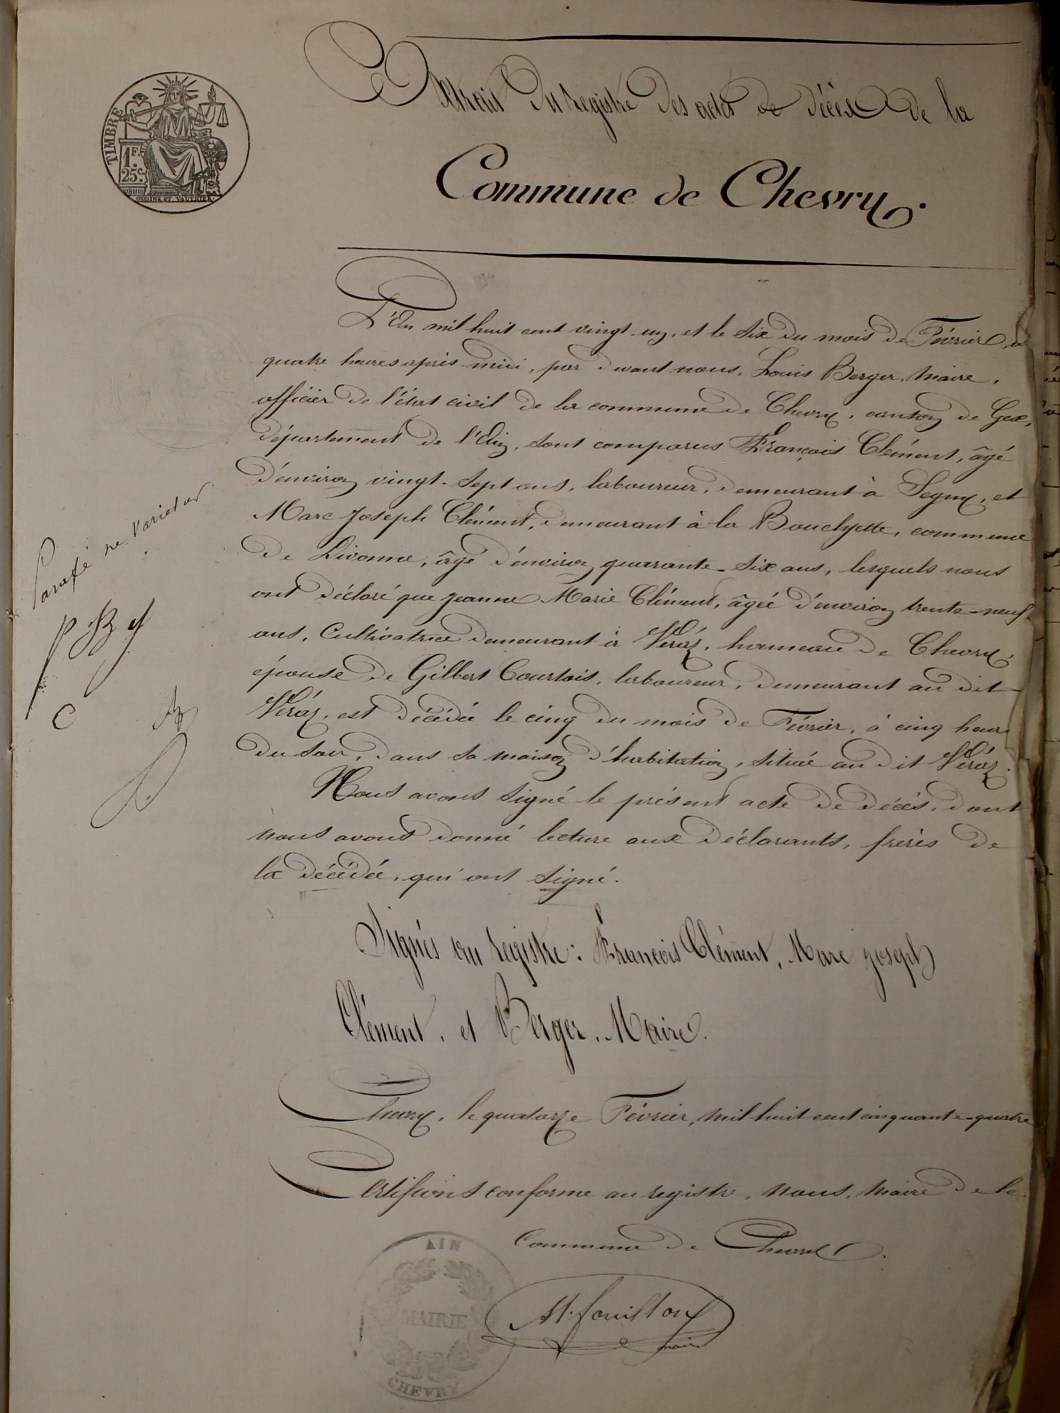 TIMBRE
1 FR
25 c.
Extrait du registre des actes de décès de la
Commune de Chevry.
L'An mil huit cent vingt-un, et le six du mois de Février, à
quatre heures après-midi, par devant nous, Louis Berger, Maire,
officier de l'état civil de la commune de Chevry, canton de Gex,
département de l'Ain, sont comparus François Clément, âgé
d'environ vingt-sept ans, laboureur, demeurant à Segny, et
Marc Joseph Clément, demeurant à la commune
de Divonne, âgé d'environ quarante-six ans, lesquels nous
ont déclaré que Jeanne Marie Clément, âgée d'environ trente-neuf
ans, Cultivatrice demeurant à Véraz, hameau de Chevry,
épouse de Gilbert Courtois, laboureur, demeurant au dit
Véraz, est décédée le cinq du mois de Février, à cinq heures
du soir, dans sa maison d'habitation, située au dit Véraz.
Nous avons signé le présent acte de décès, dont
nous avons donné lecture aux déclarants, frères de
la décédée, qui ont signé.
Signés au registre: François Clément, Marc Joseph
Clément, et Berger, Maire.
Chevry, le quatorze Février, mil-huit-cent cinquante-quatre
Certifions conforme au registre, nous, Maire de la
Commune de Chevry.
maire
Paraphé ne varietur
C
AIN
MAIRIE
CHEVRY